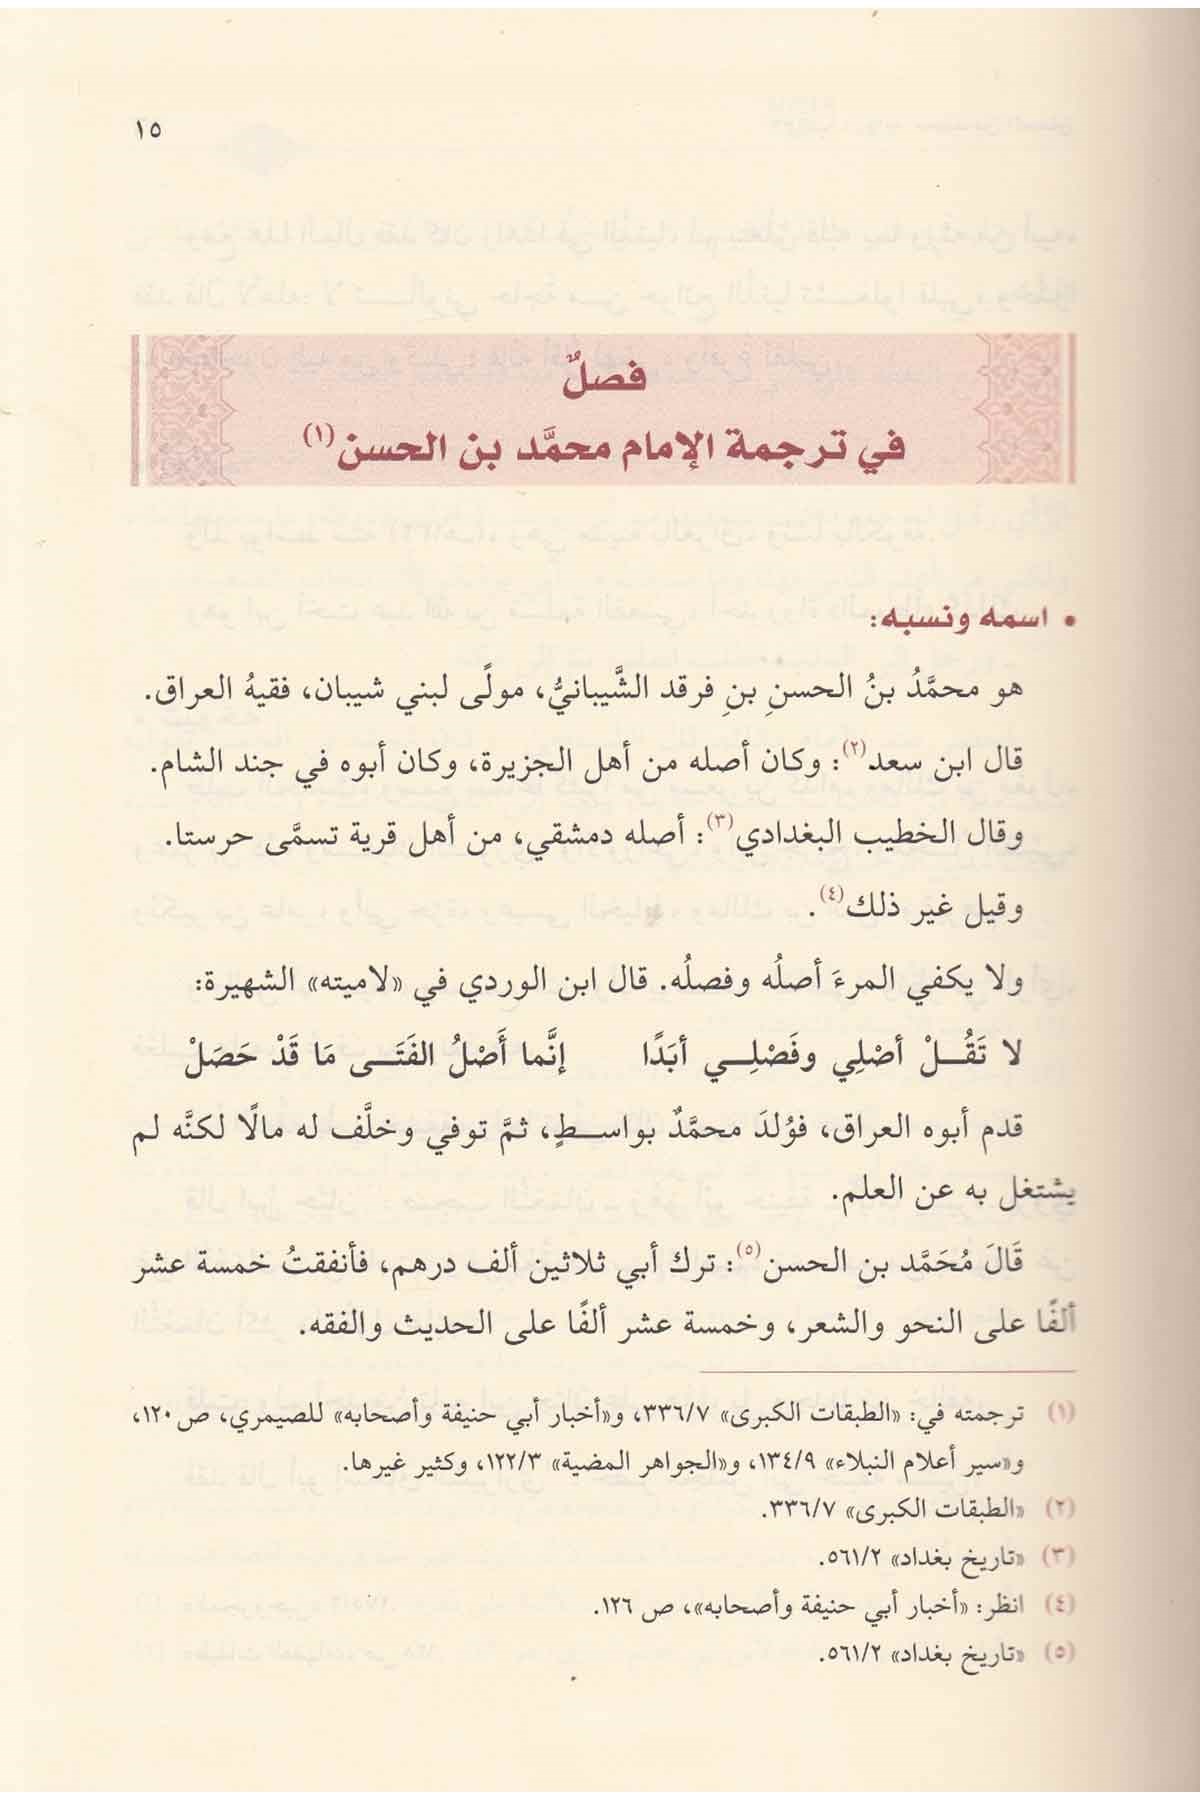 ١٥
فصلٌ
في ترجمة الإمام محمَّد بن الحسن(١)
• اسمه ونسبه:
هو محمَّدُ بنُ الحسنِ بنِ فرقد الشَّيبانيُّ، مولًى لبني شيبان، فقيهُ العراق.
قال ابن سعد(٢): وكان أصله من أهل الجزيرة، وكان أبوه في جند الشام.
وقال الخطيب البغدادي(٣): أصله دمشقي، من أهل قرية تسمَّى حرستا.
وقيل غير ذلك(٤).
ولا يكفي المرءَ أصلُه وفصلُه. قال ابن الوردي في «لاميته» الشهيرة:
لا تَقُـــلْ أصْلِي وفَصْلِـــي أبَدًا إنَّما أَصْلُ الفَتَـــى مَا قَدْ حَصَلْ
قدم أبوه العراق، فوُلدَ محمَّدٌ بواســطٍ، ثمَّ توفي وخلَّف له مالًا لكنَّه لم
يشتغل به عن العلم.
قَالَ مُحَمَّد بن الحسن(٥): ترك أبي ثلاثين ألف درهم، فأنفقتُ خمسة عشر
ألفًا على النحو والشعر، وخمسة عشر ألفًا على الحديث والفقه.
(١) ترجمته في: «الطبقات الكبرى» ٣٣٦/٧، و«أخبار أبي حنيفة وأصحابه» للصيمري، ص ١٢٠،
و«سير أعلام النبلاء» ١٣٤/٩، و«الجواهر المضية» ١٢٢/٣، وكثير غيرها.
(٢) «الطبقات الكبرى» ٣٣٦/٧.
(٣) «تاريخ بغداد» ٥٦١/٢.
(٤) انظر: «أخبار أبي حنيفة وأصحابه»، ص ١٢٦.
(٥) «تاريخ بغداد» ٥٦١/٢.